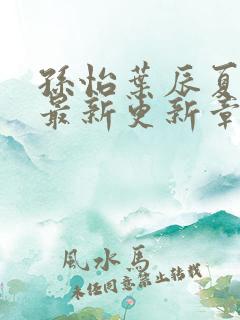 孫怡葉辰夏
最新更新章
風水馬
未经同意禁止转载